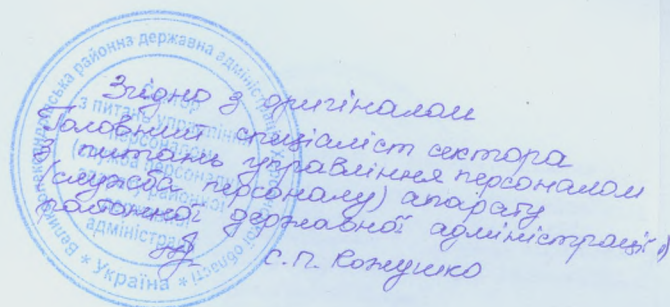 Згідно з оригіналом
Головний спеціаліст сектора
з питань управління персоналом
(служба персоналу) апарату
районної державної адміністрації
С.П. Кожушко
районна державна адміністрація
області * Україна *
з питань управління
персоналом
персоналу
районної
адміністрації